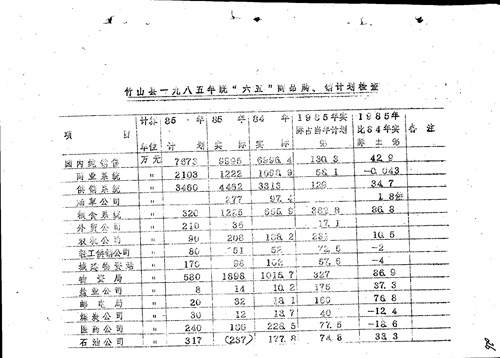 竹山县一九八五年既“六五”商品购、销计划检查
项 目 计算单位 85年计划 85年实际 84年实际 1985年实际占当年计划% 1985年比84年实际±% 备注
国内纯销售 万元 7673 9995 6996.4 130.3 42.9
商业系统 〃 2103 1222 58.1 -0.043
供销系统 〃 3460 4462 3313 129 34.7
烟草公司 277 97.4 1.8倍
粮食系统 〃 320 1225 382.8 86.8
外贸公司 〃 210 36 17.1
农机公司 〃 90 208 188.2 231 10.5
〃 80 52 72.5 -2
城建物资站 〃 170 98 102 57.6 -4
物资局 〃 580 1898 1015.7 327 86.9
盐业公司 〃 8 14 10.2 175 37.3
邮电局 〃 20 32 18.1 160 76.8
〃 30 12 13.7 40 -12.4
医药公司 〃 240 186 228.5 77.5 -18.6
石油公司 〃 317 (237) 177.8 74.8 33.3